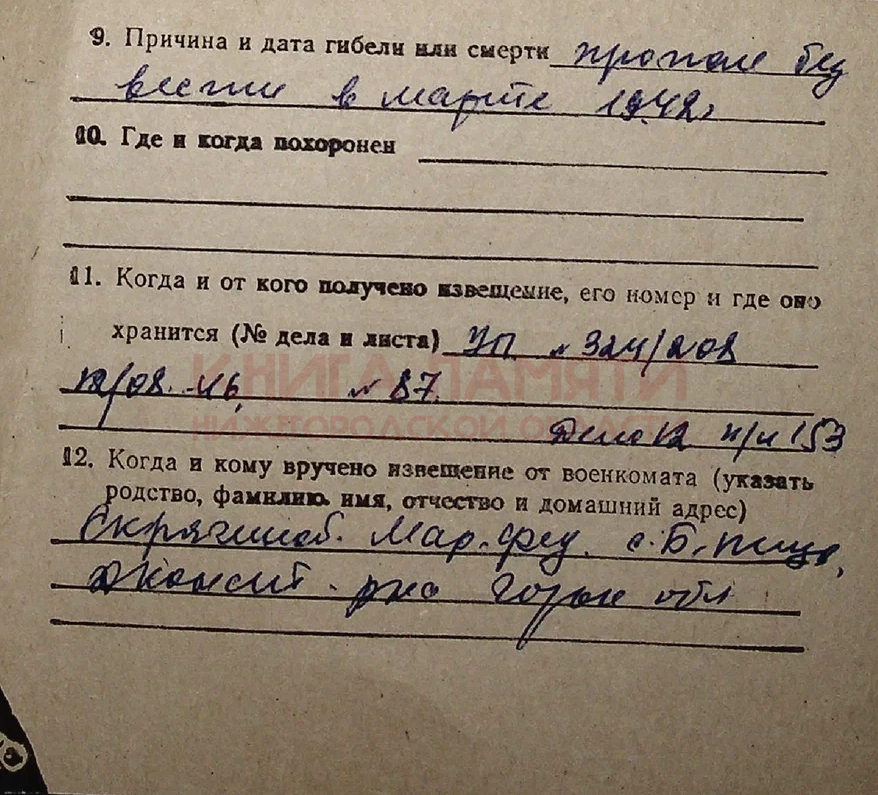 9. Причина и дата гибели или смерти пропал без
вести в марте 1942г
10. Где и когда похоронен
11. Когда и от кого получено извещение, его номер и где оно
хранится (№ дела и листа) УП № 324/208
12/08. 46, № 87.
Дело 12 н/л 153
КНИГА ПАМЯТИ
НИЖЕГОРОДСКОЙ ОБЛАСТИ
12. Когда и кому вручено извещение от военкомата (указать
родство, фамилию, имя, отчество и домашний адрес)
Мар. Фед. с. Б. пица,
р-на Горьк обл